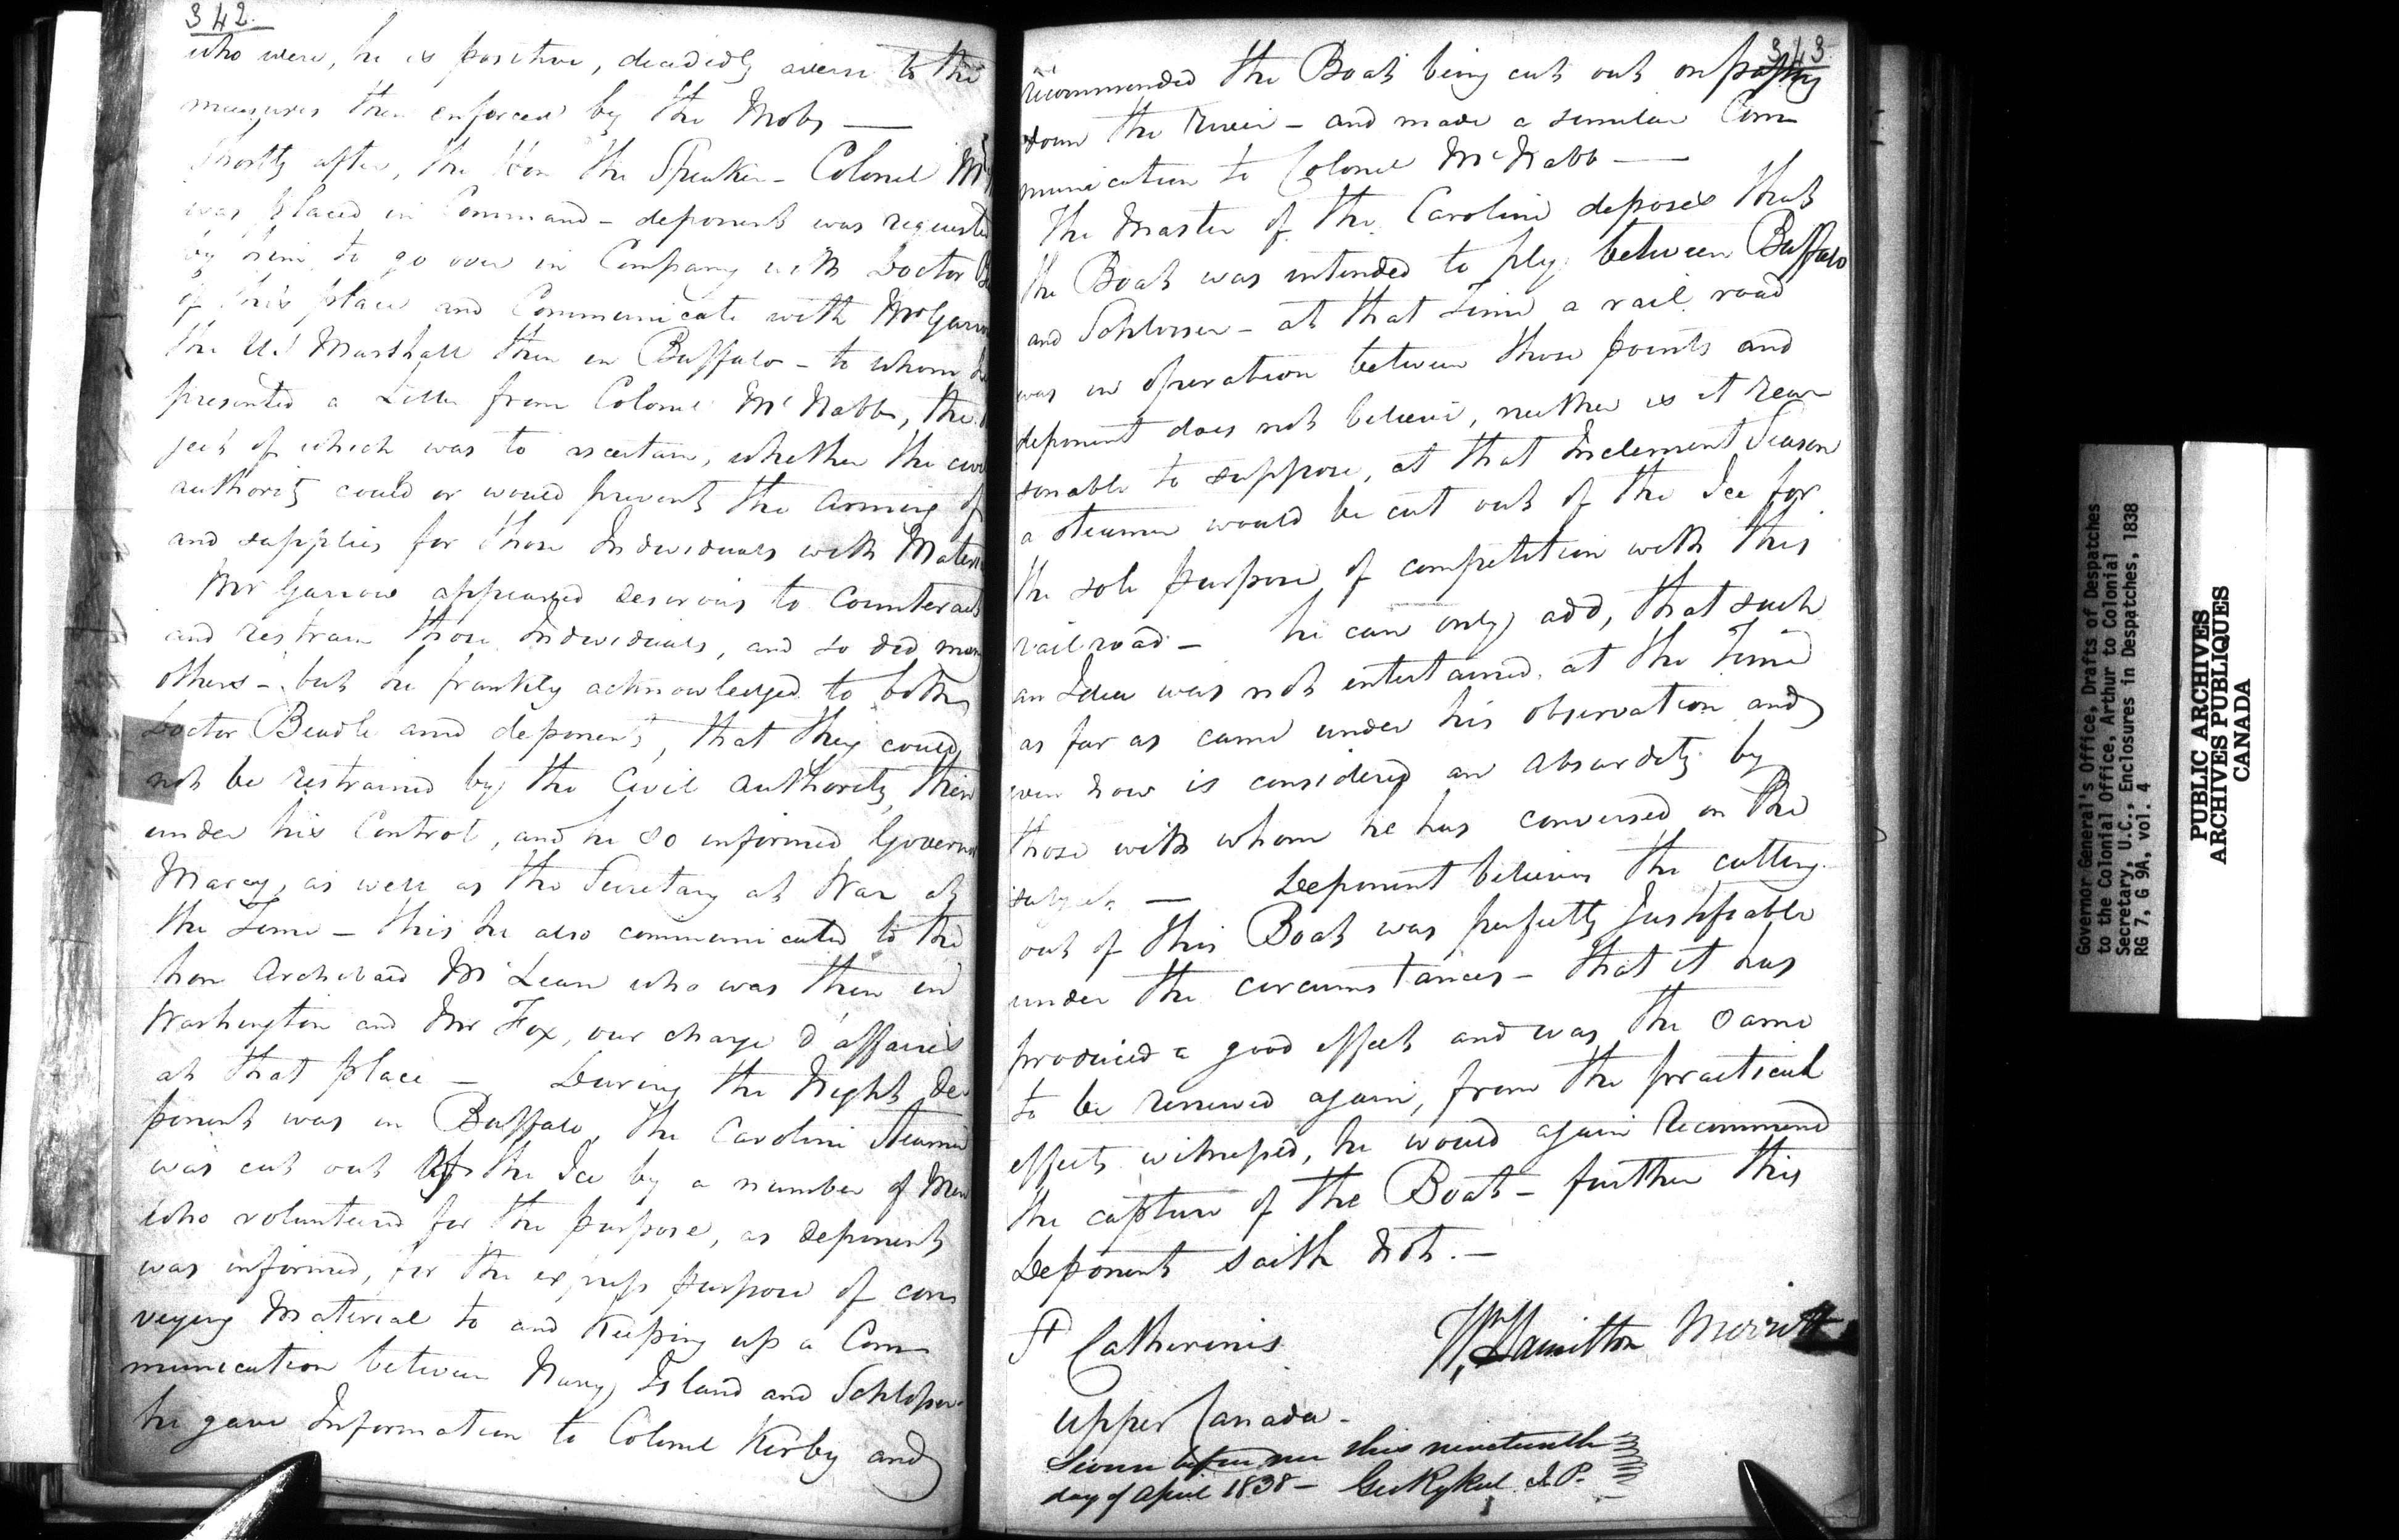 342
who were, he is positive, decidedly averse to the
measures then enforced by the Mobs —
Shortly after, the Hon the Speaker - Colonel
was placed in Command - deponent was requested
by him to go over in Company with Doctor
of this place and Communicate with Mr Garrow
the U.S Marshall then in Buffalo - to whom he
presented a Letter from Colonel McNabb, the
ject of which was to ascertain, whether the civil
authority could or would prevent the arming of
and supplies for those Individuals with
Mr Garrow appeared desirous to Counteract
and restrain those Individuals, and so did many
others - but he frankly acknowledged to both
Doctor Beadle and deponent, that they could
not be restrained by the Civil authority, then
under his Control, and he so informed Governor
Marcy, as well as the Secretary at War at
the Time - this he also communicated to the
hon Archibald McLean who was then in
Washington and Mr Fox, our charge d'affaires
at that place — During the Night de
ponent was in Buffalo, the Caroline Steamer
was cut out of the Ice by a number of Men
who volunteered for the purpose, as deponent
was informed, for the express purpose of con
veying Material to and Keeping up a Com
munication between Navy Island and Schlosser
he gave Information to Colonel Kirby and
343
recommended the Boat being cut out on passing
down the River - and made a similar Com
munication to Colonel McNabb —
The Master of the Caroline deposes that
the Boat was intended to ply between Buffalo
and Schlosser - at that Time a rail road
was in operation between those points and
deponent does not believe, neither is it rea
sonable to suppose, at that Inclement Season
a steamer would be cut out of the Ice for
the sole purpose of competition with this
railroad - he can only add, that such
an Idea was not entertained at the Time
as far as came under his observation and
even now is considered an absurdity by
those with whom he has conversed on the
subject — Deponent believes the cutting
out of this Boat was perfectly Justifiable
under the circumstances - that it has
produced a good effect and was the same
to be renewed again, from the practical
effects witnessed, he would again Recommend
the capture of the Boat - further this
Deponent saith Not. —
St Catherines Wm Hamilton Merritt
Upper Canada -
Sworn before me this nineteenth
day of April 1838 - Geo Rykert J.P.
Governor General's Office, Drafts of Despatches
to the Colonial Office, Arthur to Colonial
Secretary, U.C., Enclosures in Despatches, 1838
RG 7, G 9A, vol. 4
PUBLIC ARCHIVES
ARCHIVES PUBLIQUES
CANADA